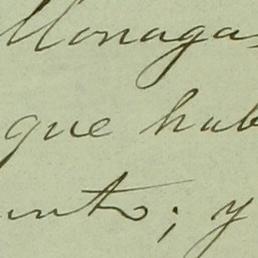 Monagas
que hub
unto; y